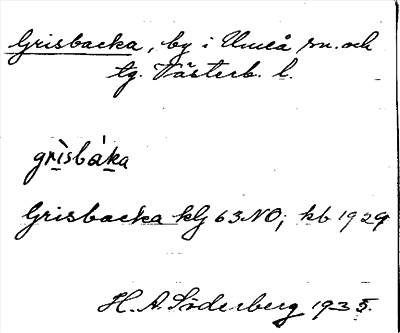 Grisbacka, by i Umeå sn. och
tg. Västerb. l.
grìsbáka
Grisbacka klg 63 NO; kb 1929
H. A. Söderberg 1935.